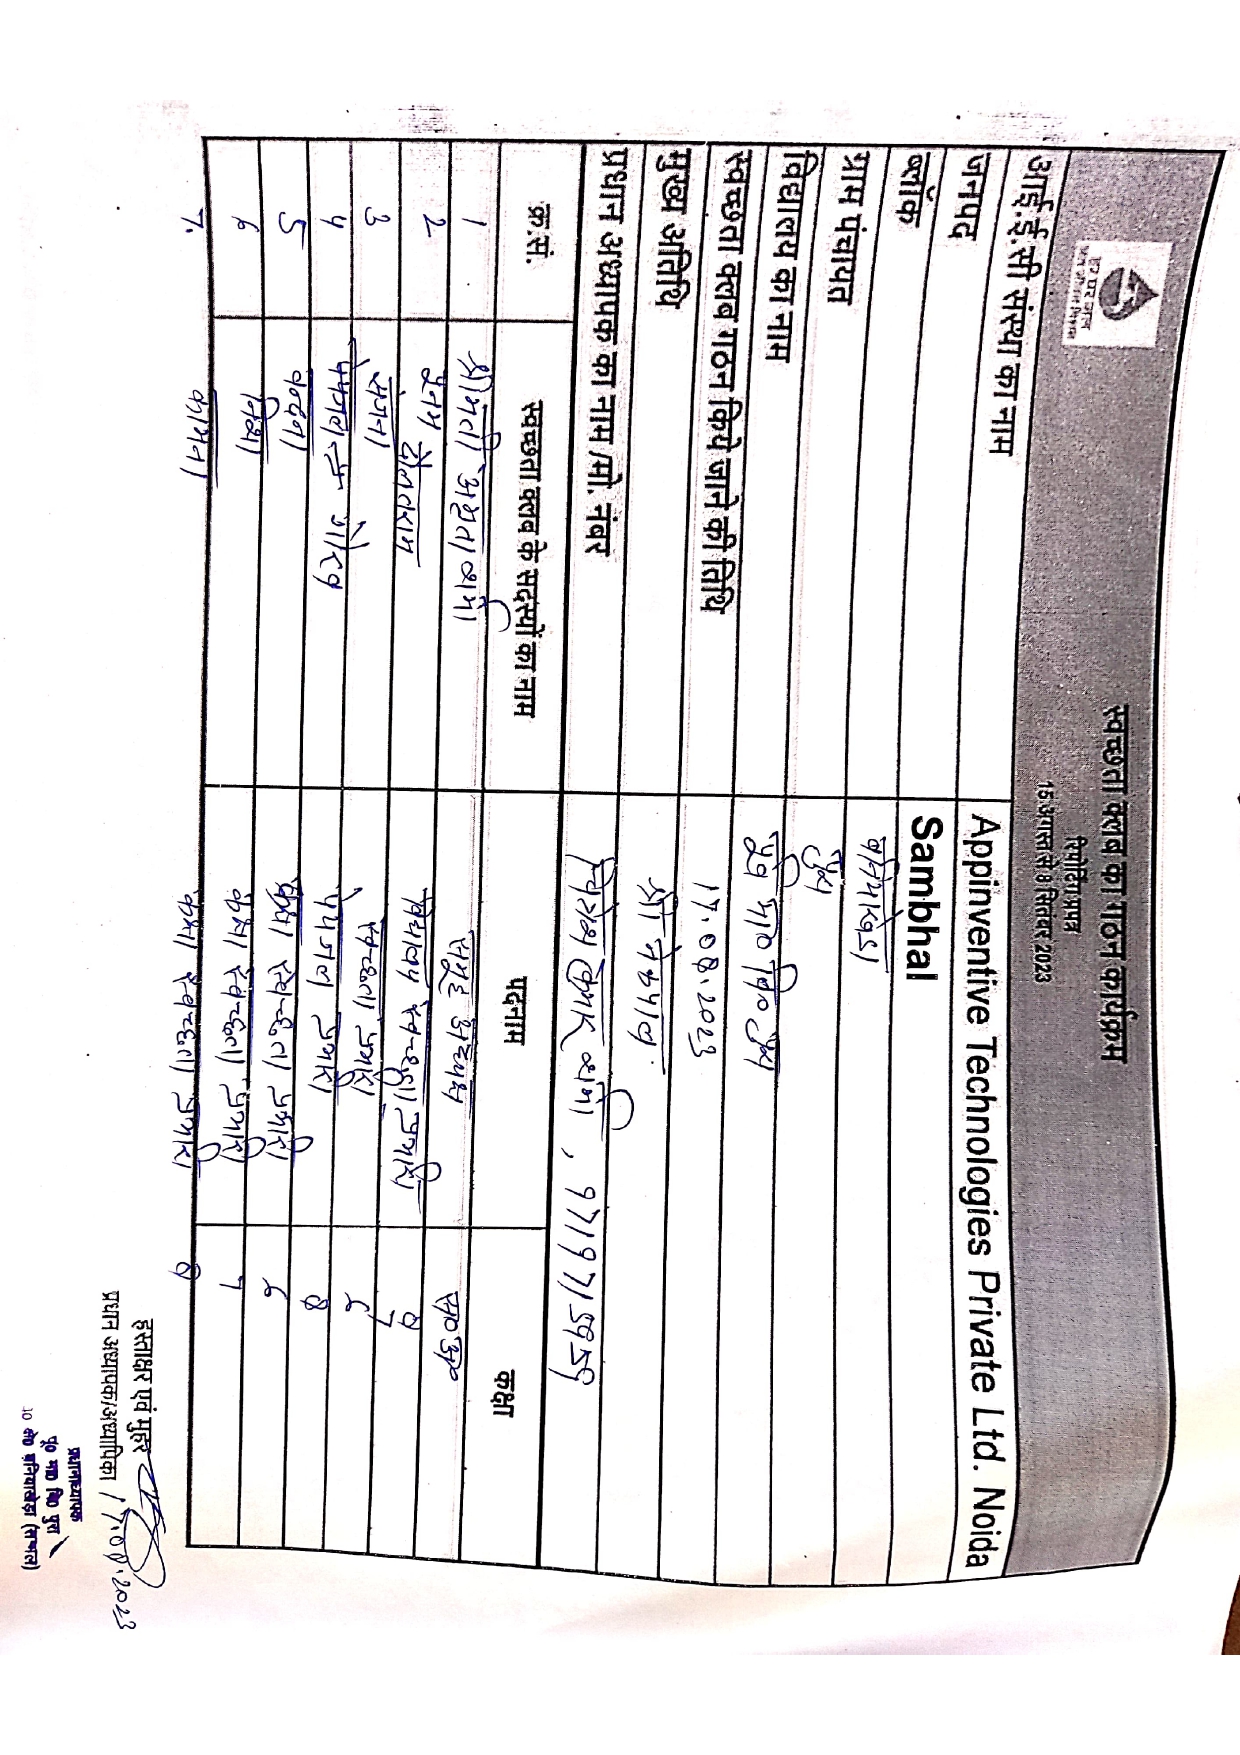 स्वच्छता क्लब का गठन कार्यक्रम
रिपोर्टिंग प्रपत्र
15 अगस्त से 8 सितंबर 2023
हर घर जल
आई.ई.सी संस्था का नाम Appinventive Technologies Private Ltd. Noida
जनपद Sambhal
ब्लॉक बनियाखेड़ा
ग्राम पंचायत पुरा
विद्यालय का नाम पूर्व मा० वि० पुरा
स्वच्छता क्लब गठन किये जाने की तिथि 17.08.2023
मुख्य अतिथि श्री नेकपाल
प्रधान अध्यापक का नाम /मो. नंबर कुमार शर्मा, 9719715959
क्र.सं. स्वच्छता क्लब के सदस्यों का नाम पदनाम कक्षा
1 श्रीमती शर्मा समूह अध्यक्ष स०अ०
2 विद्यालय स्वच्छता प्रभारी 8
3 संजना स्वच्छता प्रभारी 7
4 पेयजल प्रभारी 6
5 वन्दना कक्षा स्वच्छता प्रभारी 8
6 निशा कक्षा स्वच्छता प्रभारी 6
7. कामना कक्षा स्वच्छता प्रभारी 7
8
हस्ताक्षर एवं मुहर
प्रधान अध्यापक/अध्यापिका 17.08.2023
प्रधानाध्यापक
पू० मा० वि० पुरा
बनियाखेड़ा (सम्भल)